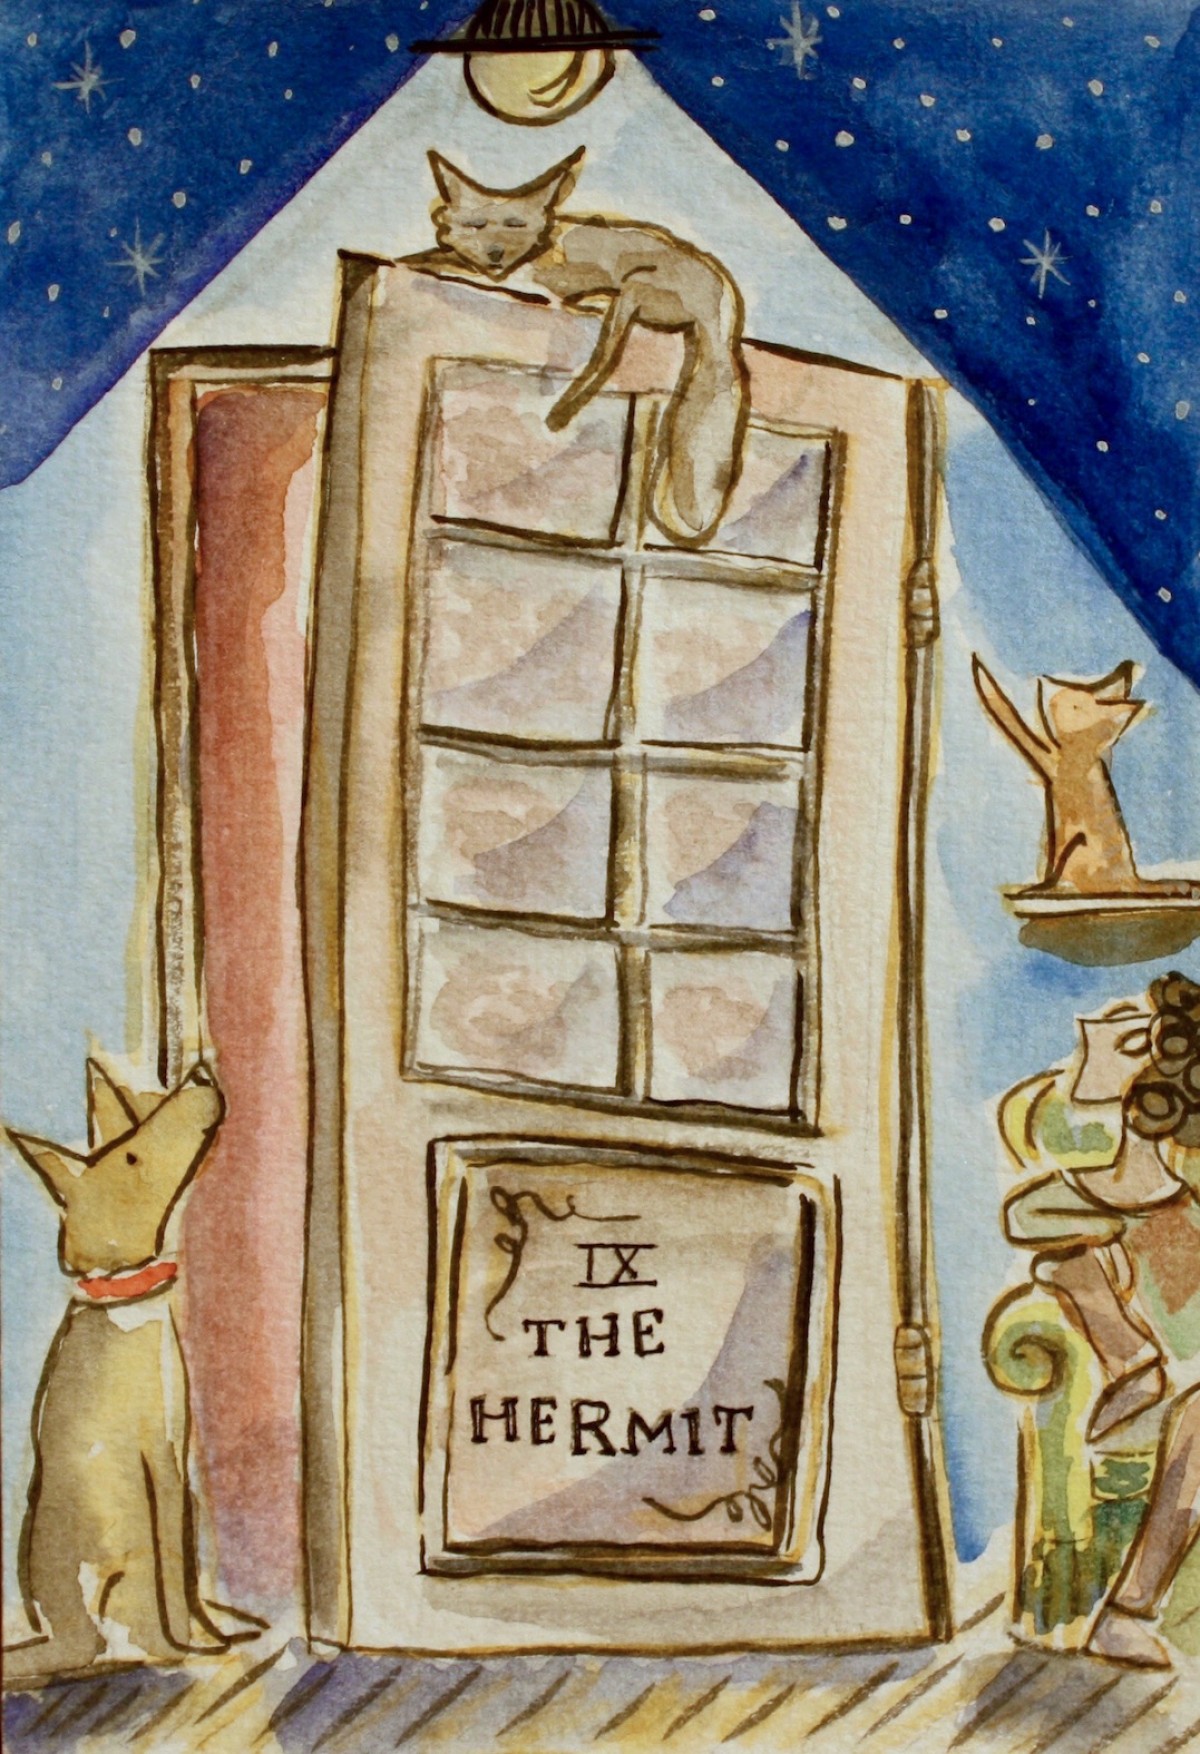 IX
THE
HERMIT